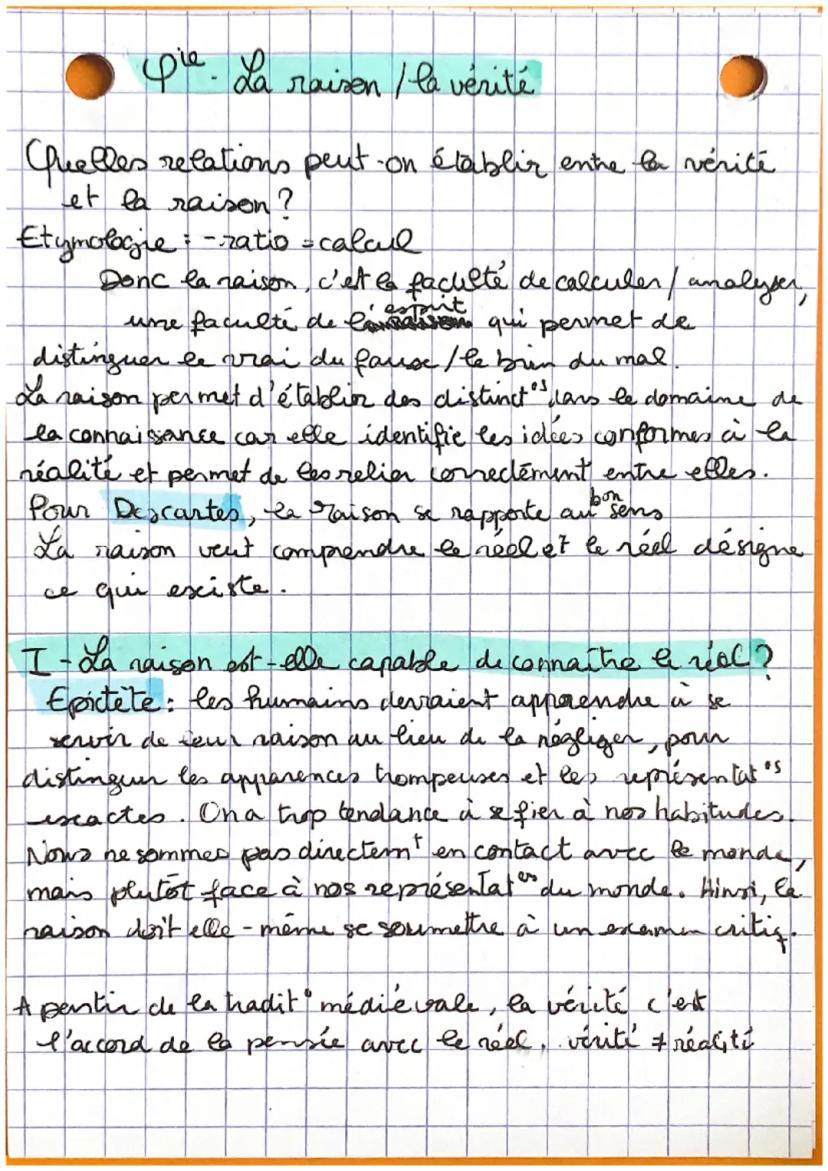 φie. La raison / la vérité
Quelles relations peut-on établir entre la vérité
et la raison ?
Etymologie : -ratio = calcul
Donc la raison, c'est la faculté de calculer / analyser,
une faculté de l'esprit qui permet de
distinguer le vrai du faux / le bien du mal.
La raison permet d'établir des distinct°s dans le domaine de
la connaissance car elle identifie les idées conformes à la
réalité et permet de les relier correctement entre elles.
Pour Descartes, la raison se rapporte au bon sens
La raison veut comprendre le réel et le réel désigne
ce qui existe.
I - La raison est-elle capable de connaître le réel ?
Epictète : les humains devraient apprendre à se
servir de leur raison au lieu de la négliger, pour
distinguer les apparences trompeuses et les représentat°s
exactes. On a trop tendance à se fier à nos habitudes.
Nous ne sommes pas directemt en contact avec le monde,
mais plutôt face à nos représentat°s du monde. Ainsi, la
raison doit elle-même se soumettre à un examen critiq.
A partir de la tradit° médiévale, la vérité c'est
l'accord de la pensée avec le réel, vérité ≠ réalité